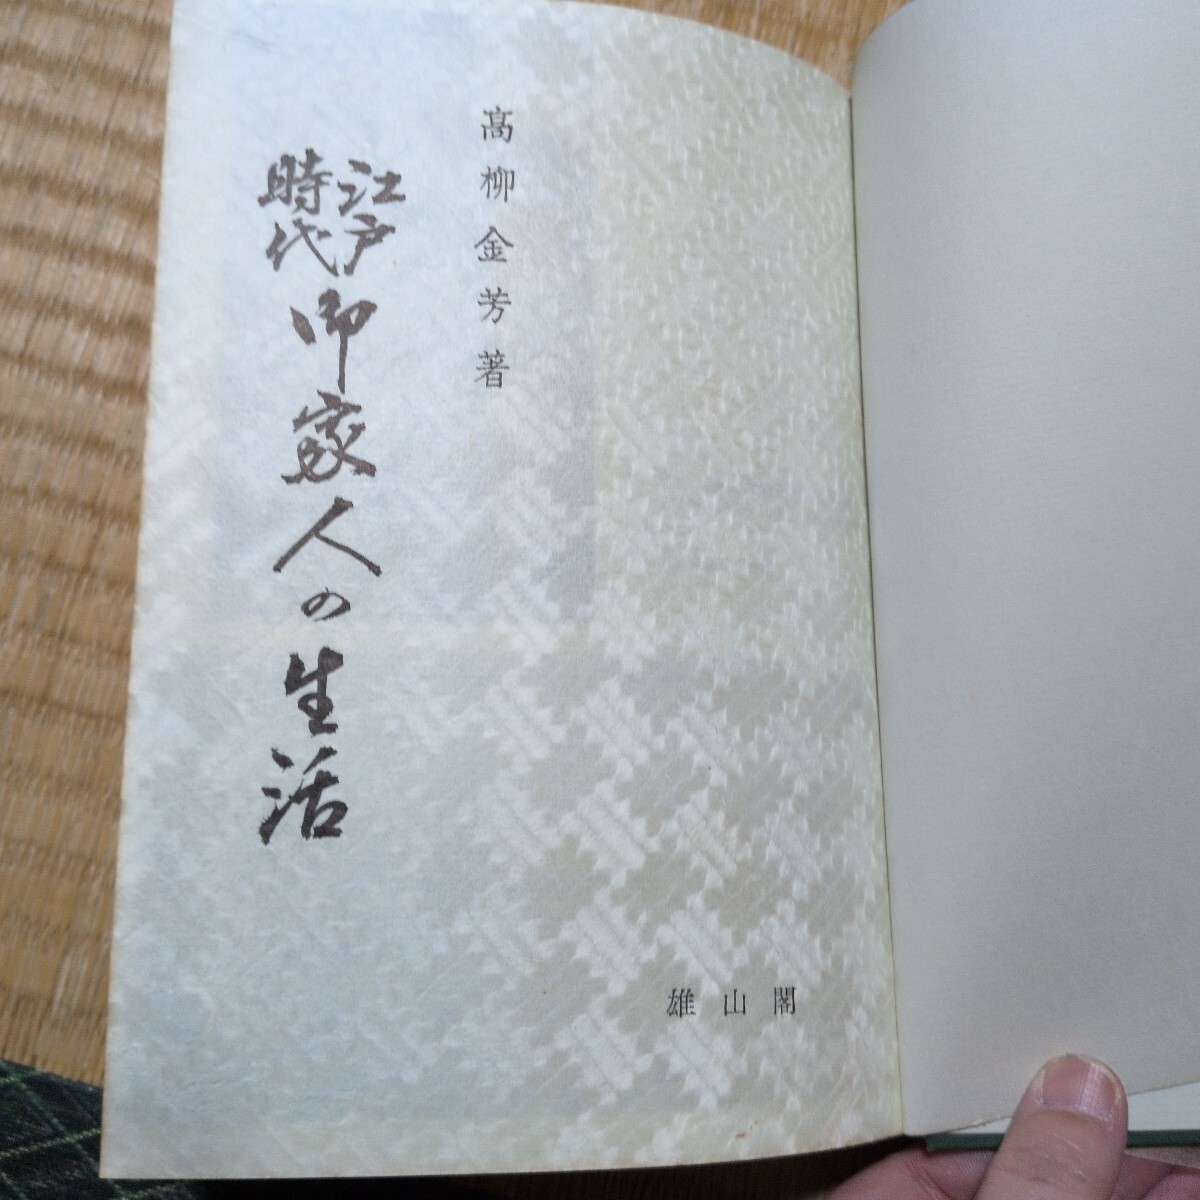 髙柳金芳著
江戸
時代
御家人の生活
雄山閣